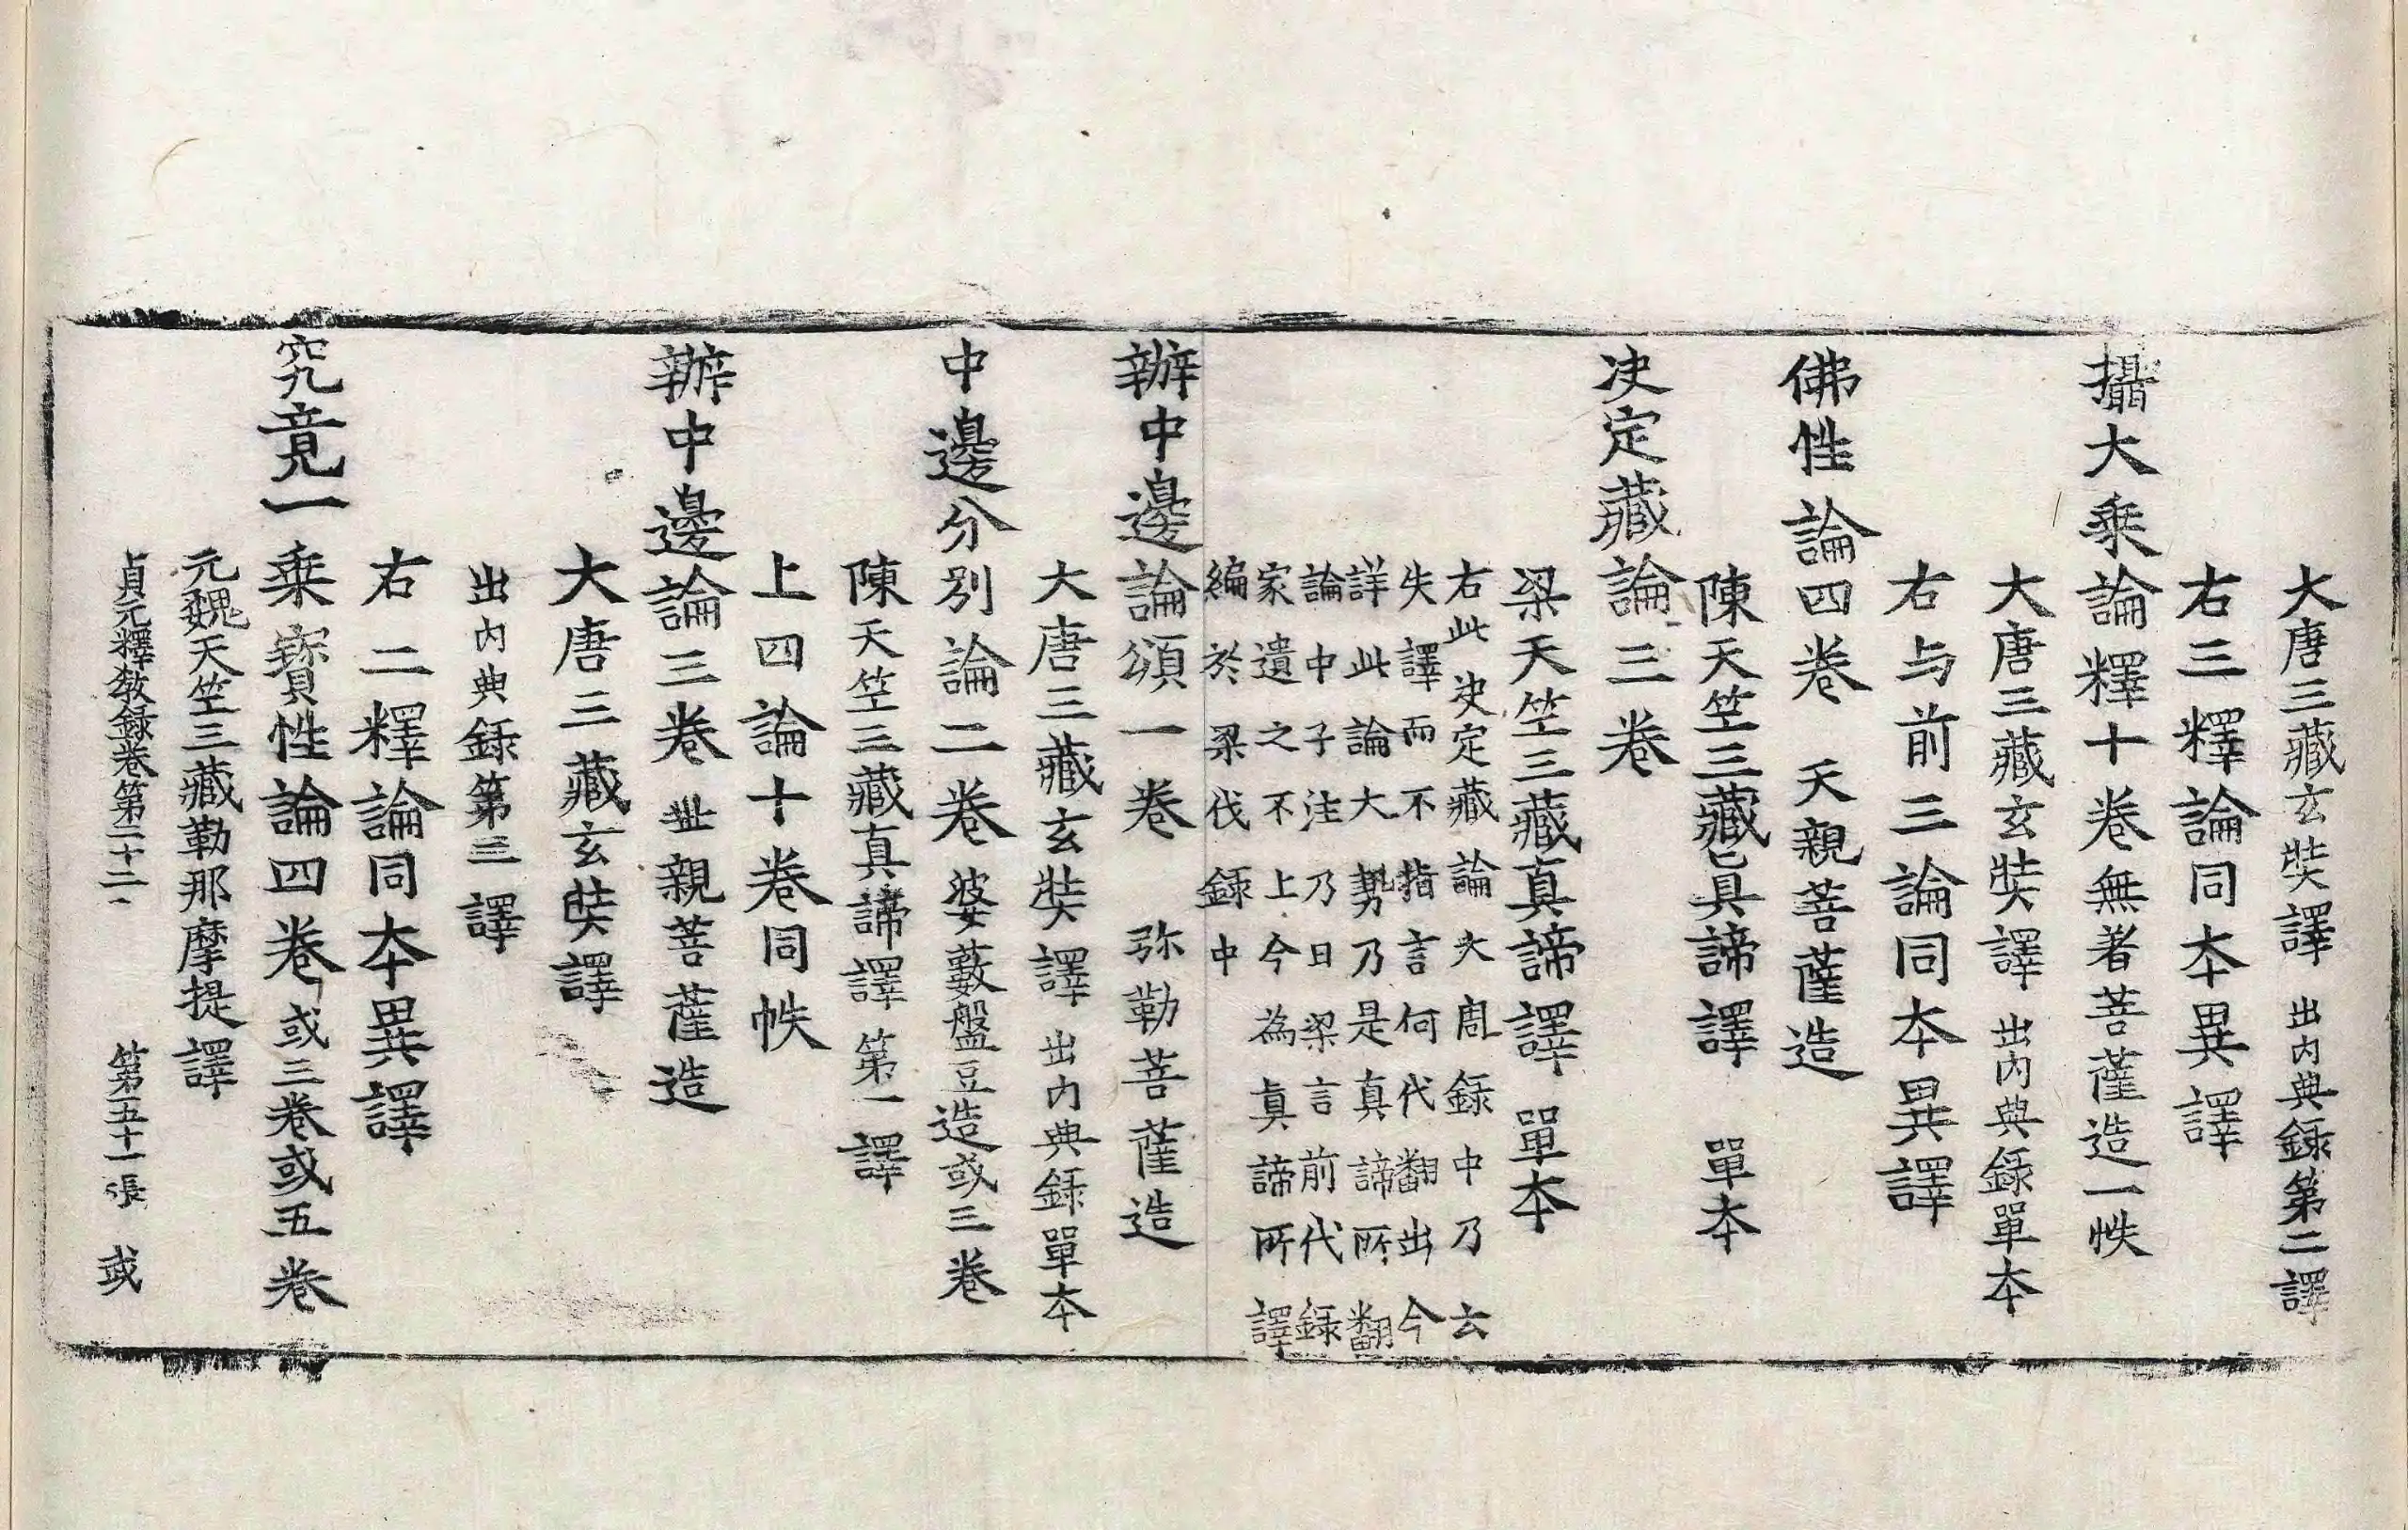 大唐三藏玄奘譯 出内典録第二譯
右三釋論同夲異譯
攝大乗論釋十卷無著菩薩造一帙
大唐三藏玄奘譯 出内典録單夲
右与前三論同夲異譯
佛性論四卷 天親菩薩造
陳天竺三藏真諦譯 單夲
决定藏論三卷
梁天竺三藏真諦譯 單夲
右此决定藏論大周録中乃云
失譯而不指言何代翻出今
詳此論大勢乃是真諦所翻
論中子注乃曰梁言前代録
家遺之不上今為真諦所譯
編於梁代録中
辦中邊論頌一卷 弥勒菩薩造
大唐三藏玄奘譯 出内典録單夲
中邊分別論二卷 婆藪盤豆造或三卷
陳天竺三藏真諦譯 第一譯
上四論十卷同帙
辦中邊論三卷 世親菩薩造
大唐三藏玄奘譯
出内典録第三譯
右二釋論同夲異譯
究竟一乗寳性論四卷 或三卷或五卷
元魏天竺三藏勒那摩提譯
貞元釋教録卷第二十二 第五十一張 或